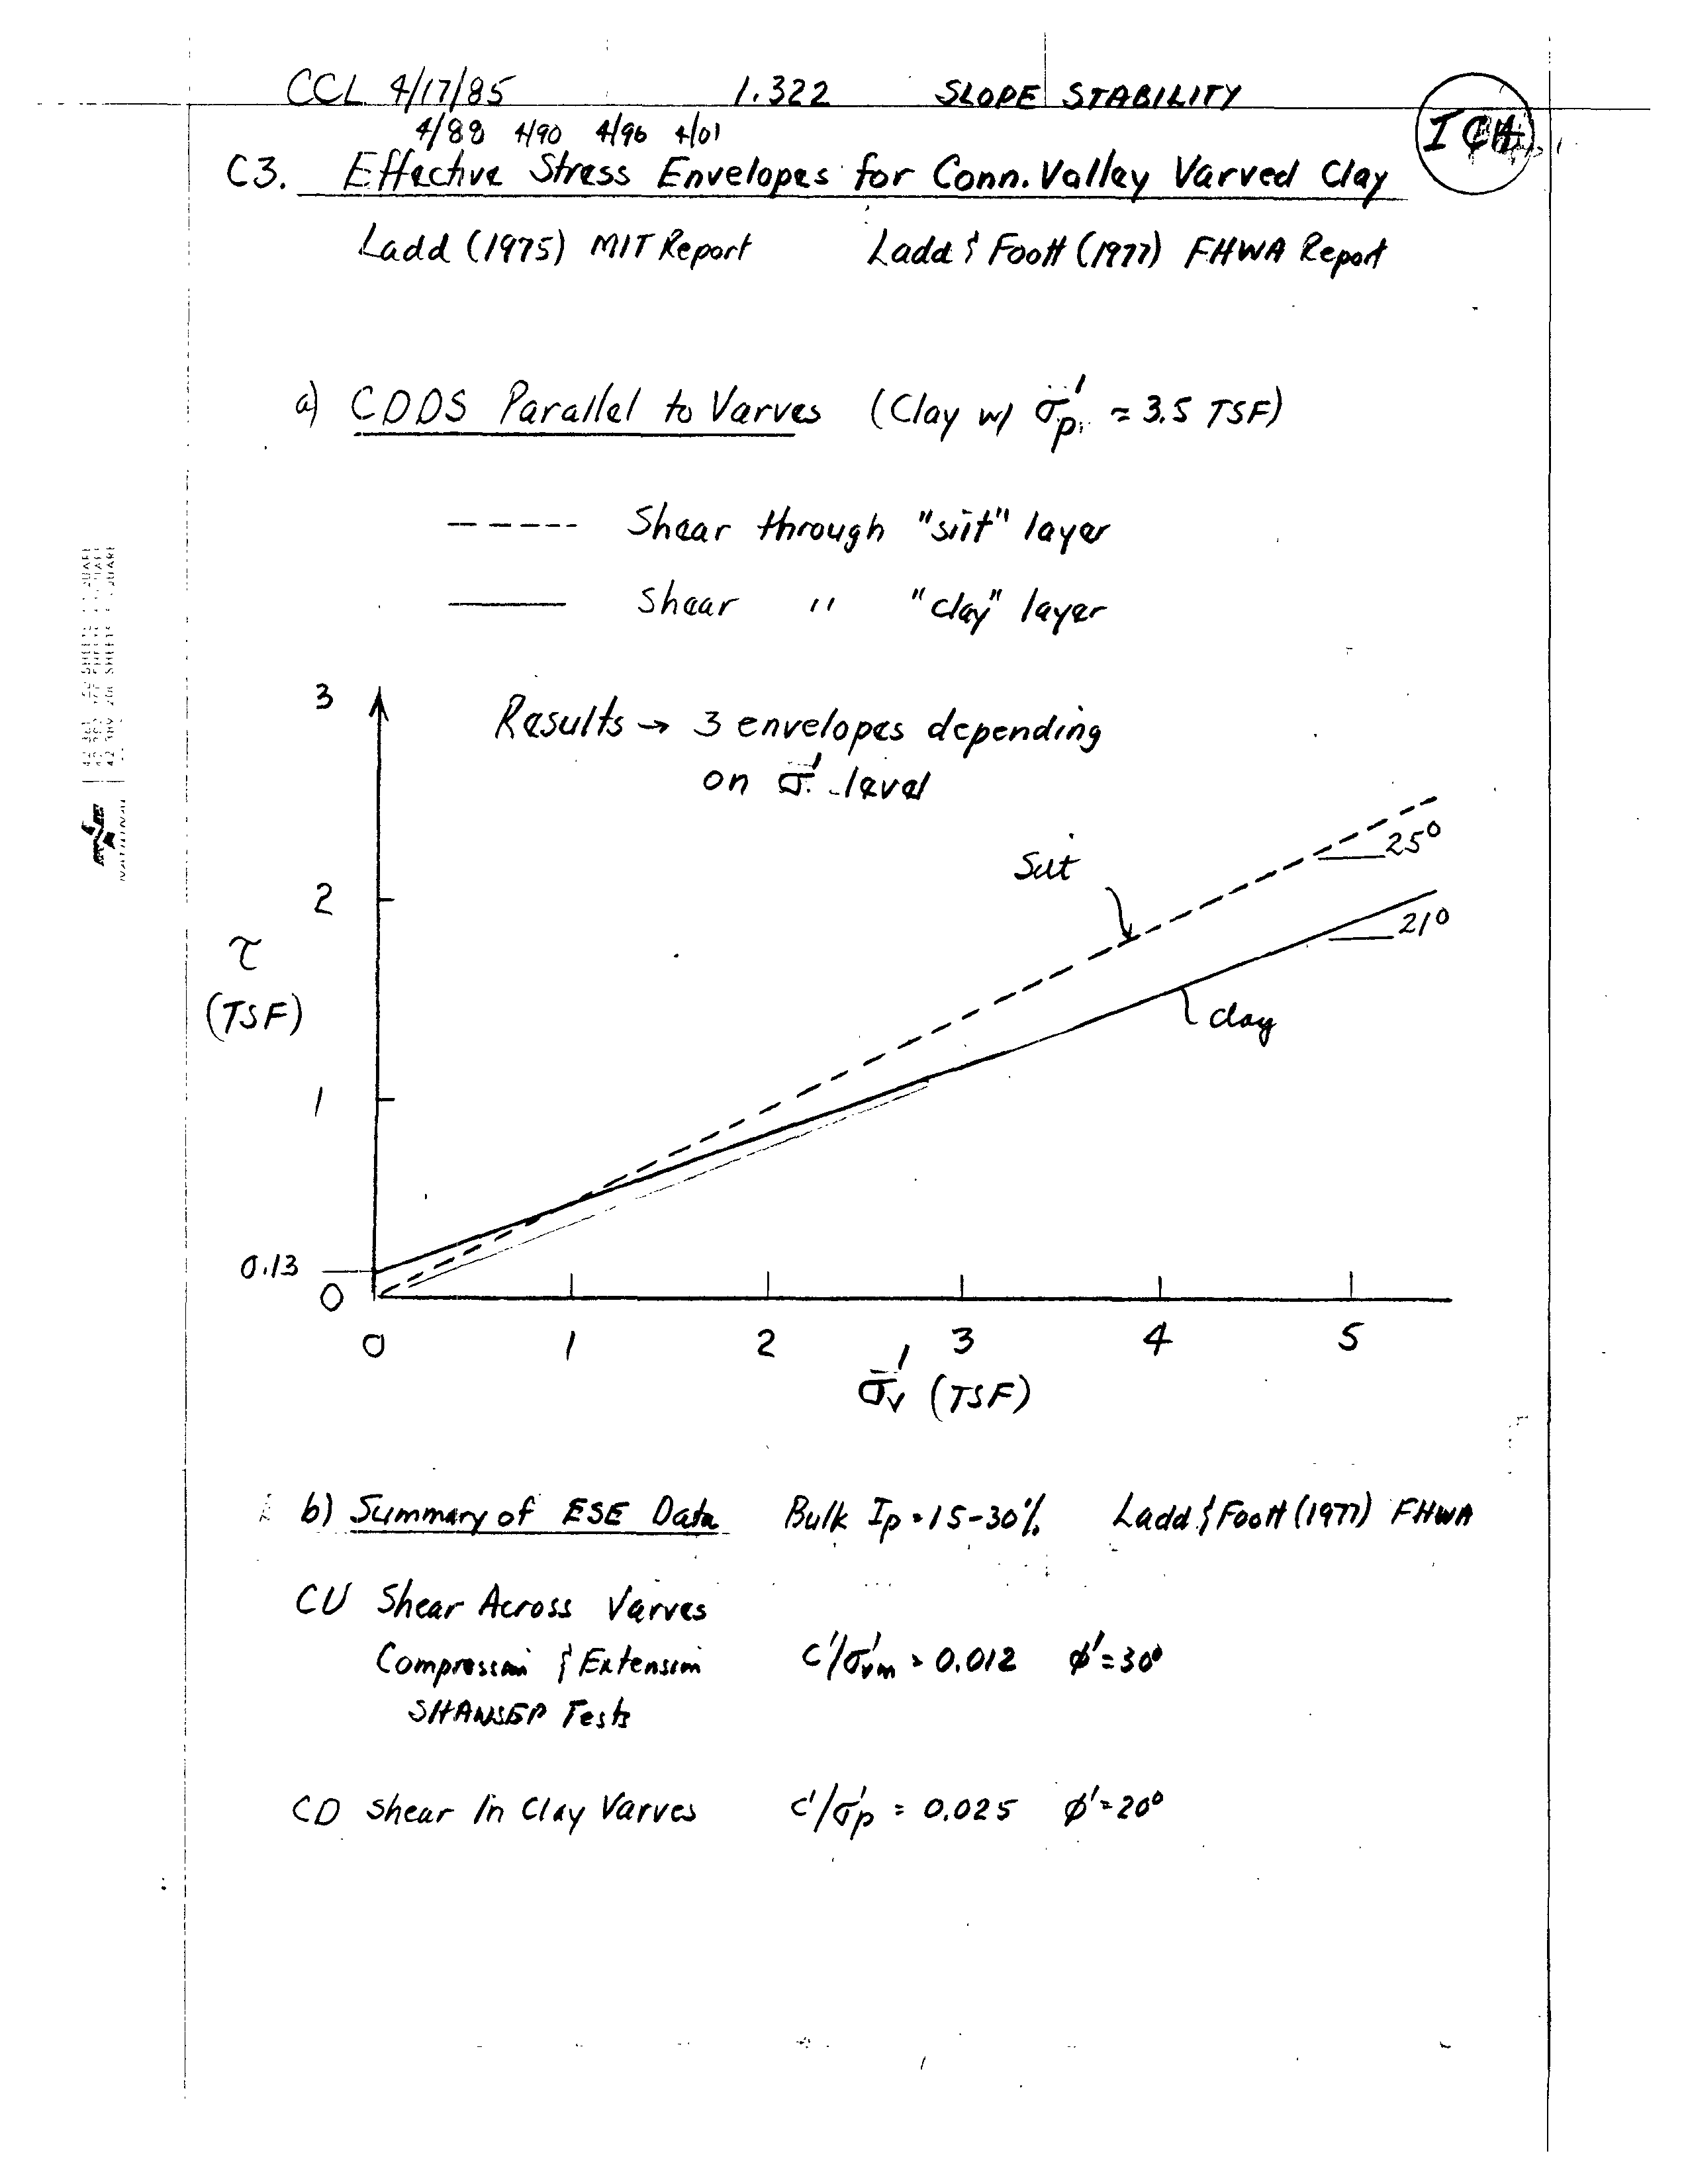 CCL 4/17/85 1.322 SLOPE STABILITY
4/88 4/90 4/96 4/01
C3. Effective Stress Envelopes for Conn. Valley Varved Clay
Ladd (1975) MIT Report Ladd & Foott (1977) FHWA Report
a) CDDS Parallel to Varves (Clay w/ σ̄'p ≈ 3.5 TSF)
Shear through "silt" layer
Shear " "clay" layer
3
Results → 3 envelopes depending
on σ̄' level
25°
Silt
2
21°
τ
(TSF)
clay
1
0.13
0
0 1 2 3 4 5
σ̄'v (TSF)
b) Summary of ESE Data Bulk Ip = 15-30% Ladd & Foott (1977) FHWA
CU Shear Across Varves
Compression & Extension c'/σ'vm = 0.012 φ' = 30°
SHANSEP Tests
CD Shear In Clay Varves c'/σ'p = 0.025 φ' = 20°